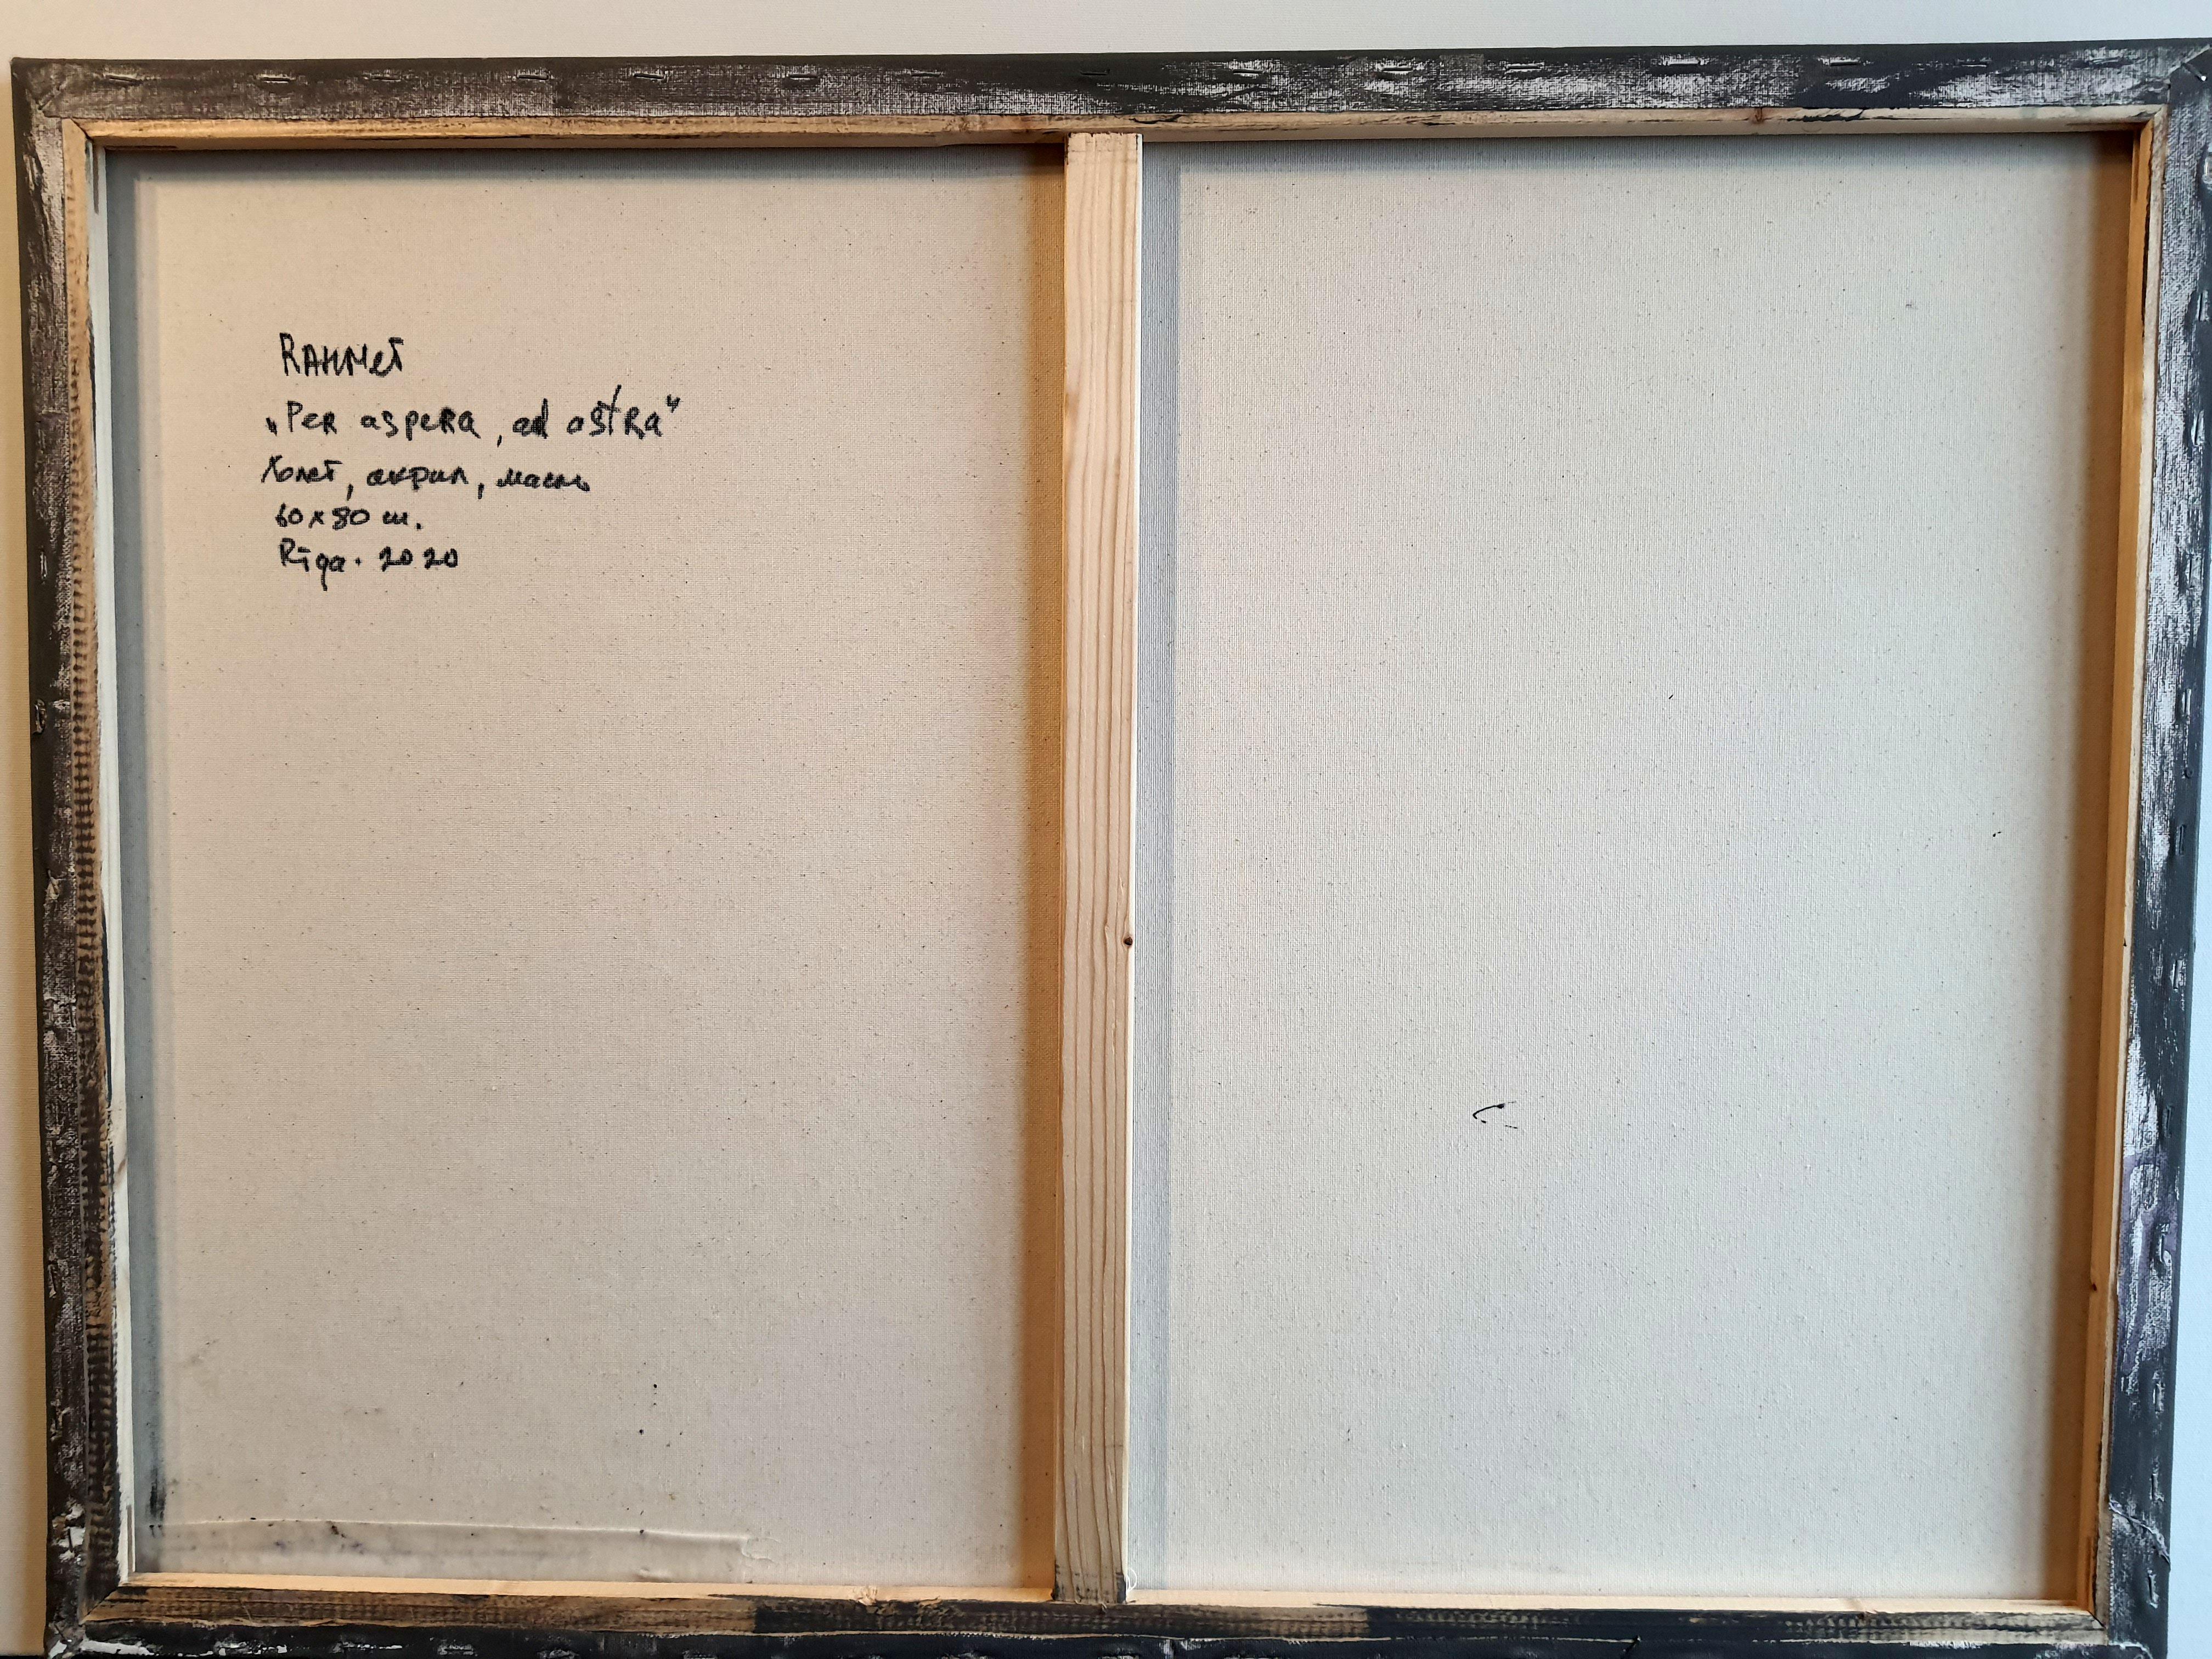 Rahmet
„Per aspera, ad astra"
Холст, акрил, масло
60x80 см.
Rīga. 2020